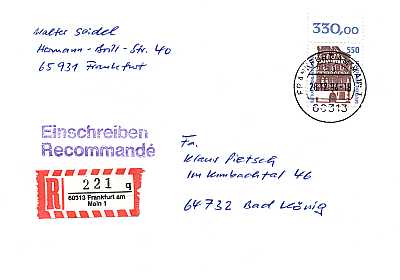 Walter Seidel
Hermann-Brill-Str. 40
65931 Frankfurt
330,00
550
60313
Einschreiben
Recommandé
R
221 q
60313 Frankfurt am
Main 1
Fa.
Klaus Pietsch
Im Kimbachtal 46
64732 Bad König